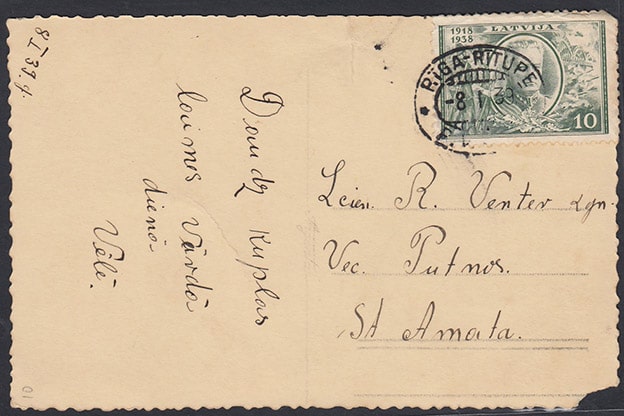 8 I 39. g.
Daudz kuplas
laimes Vārda
dienā
Vēlē.
1918
1938
LATVIJA
10
RĪGA-RITUPE
-8. I. 39
Leien. R. Venter kgn.
Vec. Putnos.
St Amata.
10